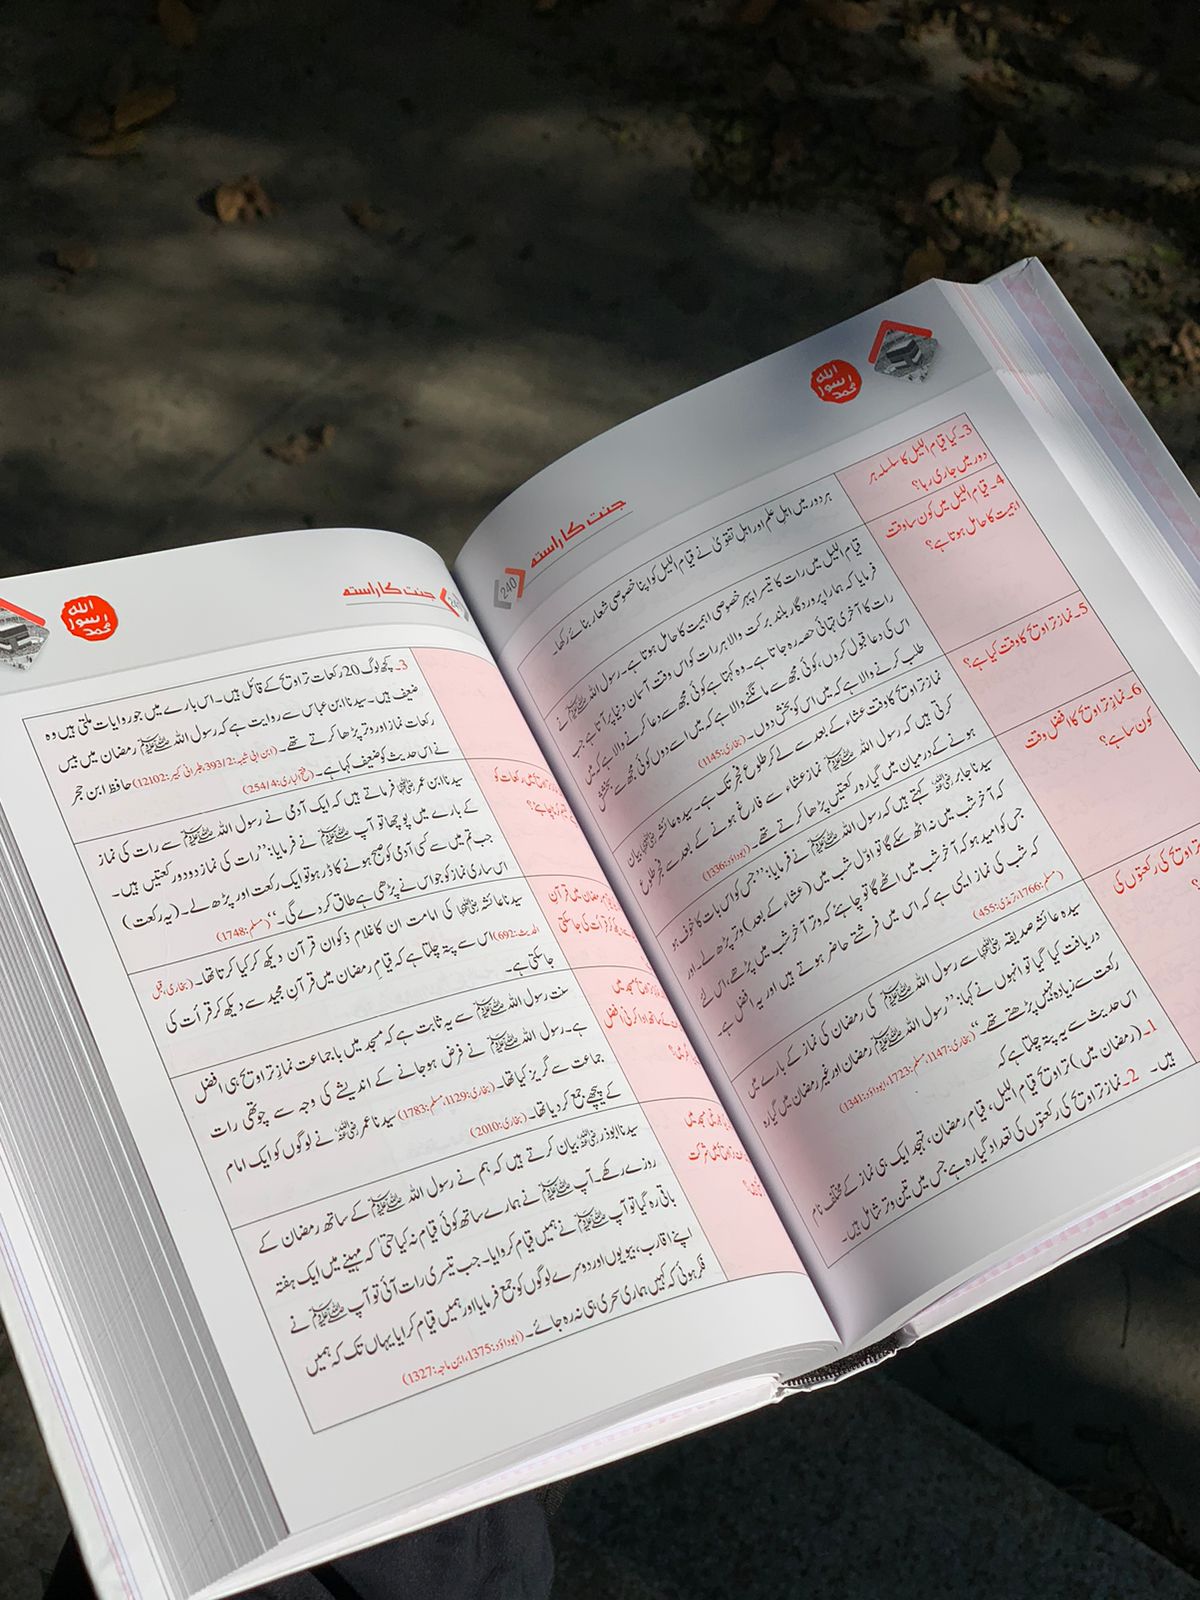 جنت کا راستہ
240
3۔ کیا قیام اللیل کا سلسلہ ہر
دور میں جاری رہا؟
ہر دور میں اہل علم اور اہل تقویٰ نے قیام اللیل کو اپنا خصوصی شعار بنائے رکھا۔
4۔ قیام اللیل میں کون سا وقت
اہمیت کا حامل ہوتا ہے؟
قیام اللیل میں رات کا تیسرا پہر خصوصی اہمیت کا حامل ہوتا ہے۔ رسول اللہ ﷺ نے
فرمایا کہ ہمارا پروردگار بلند برکت والا ہر رات کو اس وقت آسمان دنیا پر آتا ہے جب
رات کا آخری تہائی حصہ رہ جاتا ہے۔ وہ کہتا ہے کوئی مجھ سے دعا کرنے والا ہے کہ میں
اس کی دعا قبول کروں، کوئی مجھ سے مانگنے والا ہے کہ میں اسے دوں کوئی مجھ سے بخشش
طلب کرنے والا ہے کہ میں اس کو بخش دوں۔ (بخاری: 1145)
5۔ نماز تراویح کا وقت کیا ہے؟
نماز تراویح کا وقت عشاء کے بعد سے لے کر طلوع فجر تک ہے۔ سیدہ عائشہ رضی اللہ عنہا بیان
کرتی ہیں کہ رسول اللہ ﷺ نماز عشاء سے فارغ ہونے کے بعد سے فجر طلوع
ہونے کے درمیان میں گیارہ رکعتیں پڑھا کرتے تھے۔ (ابوداؤد: 1336)
6۔ نماز تراویح کا افضل وقت
کون سا ہے؟
سیدنا جابر رضی اللہ عنہ کہتے ہیں کہ رسول اللہ ﷺ نے فرمایا: ”جس کو اس بات کا خوف ہو
کہ آخر شب میں نہ اٹھ سکے گا تو اوّل شب میں (عشاء کے بعد) وتر پڑھ لے۔ اور
جس کو امید ہو کہ آخر شب میں اٹھے گا تو چاہئے کہ وتر آخر شب میں پڑھے، اس لئے
کہ شب کی نماز ایسی ہے کہ اس میں فرشتے حاضر ہوتے ہیں اور یہ افضل ہے۔
(مسلم: 1766، ترمذی: 455)
تراویح کی رکعتوں کی
سیدہ عائشہ صدیقہ رضی اللہ عنہا سے رسول اللہ ﷺ کی رمضان کی نماز کے بارے میں
دریافت کیا گیا تو انہوں نے کہا: ”رسول اللہ ﷺ رمضان اور غیر رمضان میں گیارہ
رکعت سے زیادہ نہیں پڑھتے تھے۔“ (بخاری: 1147، مسلم: 1723، ابوداؤد: 1341)
اس حدیث سے یہ پتہ چلتا ہے کہ
1۔ (رمضان میں) تراویح قیام اللیل، قیام رمضان، تہجد ایک ہی نماز کے مختلف نام
ہیں۔ 2۔ نماز تراویح کی رکعتوں کی تعداد گیارہ ہے جس میں تین وتر شامل ہیں۔
جنت کا راستہ
3۔ کچھ لوگ 20 رکعات تراویح کے قائل ہیں۔ اس بارے میں جو روایات ملتی ہیں وہ
ضعیف ہیں۔ سیدنا ابن عباس سے روایت ہے کہ رسول اللہ ﷺ رمضان میں بیس
رکعات نماز اور وتر پڑھا کرتے تھے۔ (ابن ابی شیبہ: 393/2، طبرانی کبیر: 12102) حافظ ابن حجر
نے اس حدیث کو ضعیف کہا ہے۔ (فتح الباری: 254/4)
سیدنا ابن عمر رضی اللہ عنہ فرماتے ہیں کہ ایک آدمی نے رسول اللہ ﷺ سے رات کی نماز
کے بارے میں پوچھا تو آپ ﷺ نے فرمایا: ”رات کی نماز دو دو رکعتیں ہیں۔
جب تم میں سے کسی آدمی کو صبح ہونے کا ڈر ہو تو ایک رکعت اور پڑھ لے۔ (یہ رکعت)
اس ساری نماز کو جو اس نے پڑھی ہے طاق کر دے گی۔“ (مسلم: 1748)
سیدنا عائشہ رضی اللہ عنہا کی امامت ان کا غلام ذکوان قرآن دیکھ کر کیا کرتا تھا۔ (بخاری، قبل
الحدیث: 692) اس سے پتہ چلتا ہے کہ قیام رمضان میں قرآن مجید سے دیکھ کر قرأت کی
جاسکتی ہے۔
سنت رسول اللہ ﷺ سے یہ ثابت ہے کہ مسجد میں باجماعت نماز تراویح ہی افضل
ہے۔ رسول اللہ ﷺ نے فرض ہو جانے کے اندیشے کی وجہ سے چوتھی رات
جماعت سے گریز کیا تھا۔ (بخاری: 1129، مسلم: 1783) سیدنا عمر رضی اللہ عنہ نے لوگوں کو ایک امام
کے پیچھے جمع کر دیا تھا۔ (بخاری: 2010)
سیدنا ابوذر رضی اللہ عنہ بیان کرتے ہیں کہ ہم نے رسول اللہ ﷺ کے ساتھ رمضان کے
روزے رکھے۔ آپ ﷺ نے ہمارے ساتھ کوئی قیام نہ کیا حتیٰ کہ مہینے میں ایک ہفتہ
باقی رہ گیا تو آپ ﷺ نے ہمیں قیام کروایا۔ جب تیسری رات آئی تو آپ ﷺ نے
اپنے اقارب، بیویوں اور دوسرے لوگوں کو جمع فرمایا اور ہمیں قیام کرایا یہاں تک کہ ہمیں
فکر ہوئی کہ کہیں ہماری سحری ہی نہ رہ جائے۔ (ابوداؤد: 1375، ابن ماجہ: 1327)